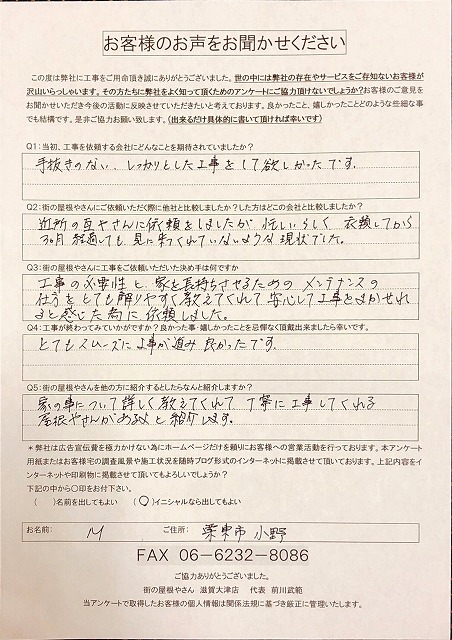 お客様のお声をお聞かせください
この度は弊社に工事をご用命頂き誠にありがとうございました。世の中には弊社の存在やサービスをご存知ないお客様が
沢山いらっしゃいます。その方たちに弊社をよく知って頂くためのアンケートにご協力頂けないでしょうか?お客様のご意見を
お聞かせいただき今後の活動に反映させていただきたいと考えております。良かったこと、嬉しかったことどのような些細な事
でも結構です。是非ご協力お願い致します。(出来るだけ具体的に書いて頂ければ幸いです)
Q1:当初、工事を依頼する会社にどんなことを期待されていましたか?
手抜きのない、しっかりとした工事をして欲しかったです。
Q2:街の屋根やさんにご依頼いただく際に他社と比較しましたか?した方はどこの会社と比較しましたか?
近所の瓦やさんに依頼をしましたが忙しいらしく 依頼してから
3ヶ月 経過しても見に来てくれていないような現状でした。
Q3:街の屋根やさんに工事をご依頼いただいた決め手は何ですか
工事の必要性と家を長持ちさせるための メンテナンスの
仕方をとても解りやすく教えてくれて安心して工事をまかせれ
ると感じた為に依頼しました。
Q4:工事が終わってみていかがですか?良かった事・嬉しかったことを忌憚なく頂戴出来ましたら幸いです。
とてもスムーズに工事が進み 良かったです。
Q5:街の屋根やさんを他の方に紹介するとしたらなんと紹介しますか?
家の事について詳しく教えてくれて 丁寧に工事してくれる
屋根やさんがあるよと紹介します。
*弊社は広告宣伝費を極力かけない為にホームページだけを頼りにお客様への営業活動を行っております。本アンケート
用紙またはお客様宅の調査風景や施工状況を随時ブログ形式のインターネットに掲載させて頂いております。上記内容をイ
ンターネットや印刷物に掲載させて頂いてもよろしいでしょうか?
下記の中から〇印をお付下さい。
( )名前を出してもよい (〇)イニシャルなら出してもよい
お名前: M ご住所: 栗東市 小野
FAX 06-6232-8086
ご協力ありがとうございました。
街の屋根やさん 滋賀大津店 代表 前川武範
当アンケートで取得したお客様の個人情報は関係法規に基づき厳正に管理いたします。